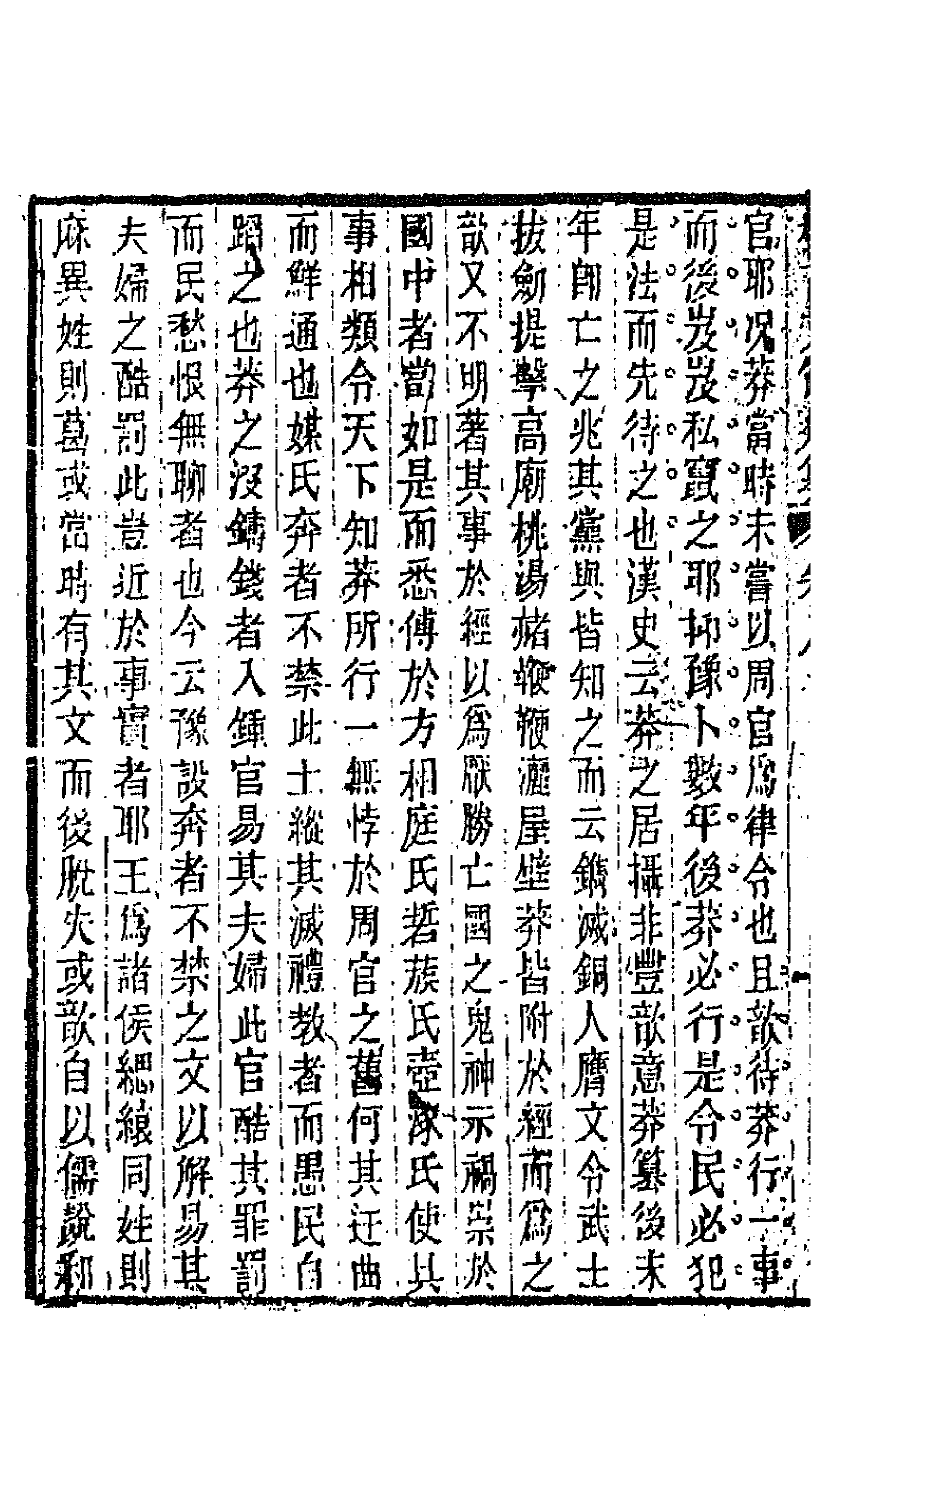 官耶况莽當時未嘗以周官爲律令也且歆待莽行一事
而後岌岌私竄之耶抑豫卜數年後莽必行是令民必犯
是法而先待之也漢史云莽之居攝非豐歆意莽簒後未
年卽亡之兆其黨與皆知之而云鐫滅銅人膺文令武士
拔劒提擊高廟桃湯赭鞭鞭灑屋壁莽皆附於經而爲之
歆又不明著其事於經以爲厭勝亡國之鬼神示禍祟於
國中者當如是而悉傅於方相庭氏硩蔟氏壺涿氏使其
事相類令天下知莽所行一無悖於周官之舊何其迂曲
而鮮通也媒氏奔者不禁此士縱其滅禮教者而愚民自
蹈之也莽之沒鑄錢者入鍾官易其夫婦此官酷其罪罰
而民愁恨無聊者也今云豫設奔者不禁之文以解易其
夫婦之酷罰此豈近於事實者耶王爲諸侯緦縗同姓則
麻異姓則葛或當時有其文而後脫失或歆自以儒說鄒